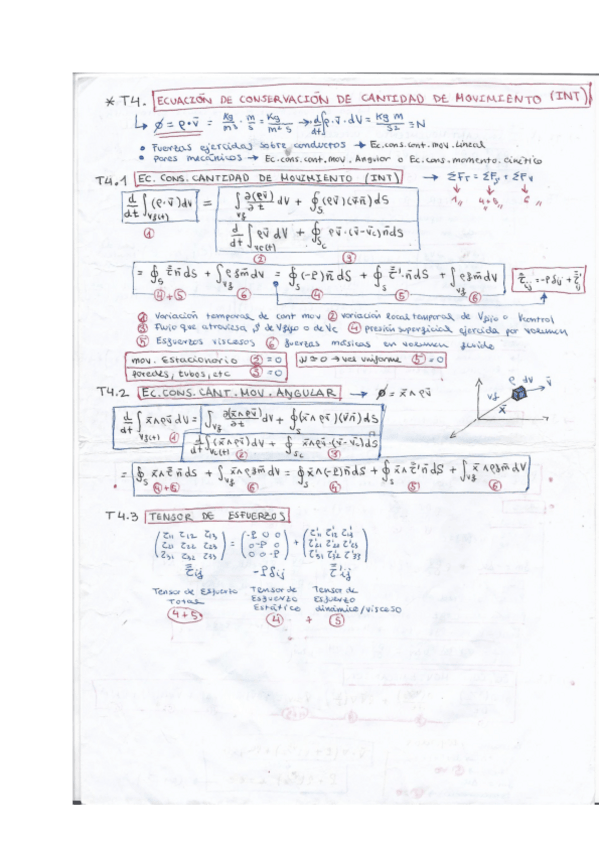 * T4. ECUACIÓN DE CONSERVACIÓN DE CANTIDAD DE MOVIMIENTO (INT)
↳ φ = ρ·v̄ = Kg/m³ · m/s = Kg/m²s → d/dt∫ρ·v̄·dV = Kg m/s² ≡ N
• Fuerzas ejercidas sobre conductos → Ec.cons.cant.mov.Lineal
• pares mecánicos → Ec.cons.cant.mov. Angular o Ec.cons.momento.cinético
T4.1 EC. CONS. CANTIDAD DE MOVIMIENTO (INT)
d/dt ∫Vf(t) (ρ·v̄)dV = ∫Vf ∂(ρv̄)/∂t dV + ∮S (ρv̄)(v̄n̄)dS
① d/dt ∫Vc(t) ρv̄ dV + ∮Sc ρv̄·(v̄-v̄c)n̄dS
② ③
= ∮S τ̿n̄dS + ∫Vf ρḡm dV = ∮S (-P)n̄dS + ∮S τ̿'·n̄dS + ∫Vf ρḡm dV
④+⑤ ⑥ ④ ⑤ ⑥
① Variación temporal de cant mov ② variación local temporal de Vfijo o Kontrol
③ Flujo que atraviesa S de Vfijo o de Vc ④ presión superficial ejercida por volumen
⑤ Esfuerzos viscosos ⑥ fuerzas másicas en volumen fluido
mov. Estacionario ② = 0
paredes, tubos, etc ③ = 0
T4.2 EC. CONS. CANT. MOV. ANGULAR → φ = x̄∧ρv̄
ρ dV v̄
Vf
x̄
d/dt ∫Vf(t) x̄∧ρv̄ dV = ∫Vf ∂(x̄∧ρv̄)/∂t dV + ∮S (x̄∧ρv̄)(v̄n̄)dS
① d/dt ∫Vc(t) (x̄∧ρv̄)dV + ∮Sc x̄∧ρv̄·(v̄-v̄c)dS
② ③
= ∮S x̄∧τ̿n̄dS + ∫Vf x̄∧ρḡm dV = ∮S x̄∧(-P)n̄dS + ∮S x̄∧τ̿'n̄dS + ∫Vf x̄∧ρḡm dV
④+⑤ ⑥ ④ ⑤ ⑥
T4.3 TENSOR DE ESFUERZOS
(τ11 τ12 τ13) = (-P 0 0) + (τ'11 τ'12 τ'13)
(τ21 τ22 τ23) (0 -P 0) (τ'21 τ'22 τ'23)
(τ31 τ32 τ33) (0 0 -P) (τ'31 τ'32 τ'33)
τ̿ij -Pδij τ̿'ij
Tensor de Esfuerzo Tensor de Tensor de
Total Esfuerzo Esfuerzo
Estático dinámico/viscoso
④+⑤ ④ + ⑤